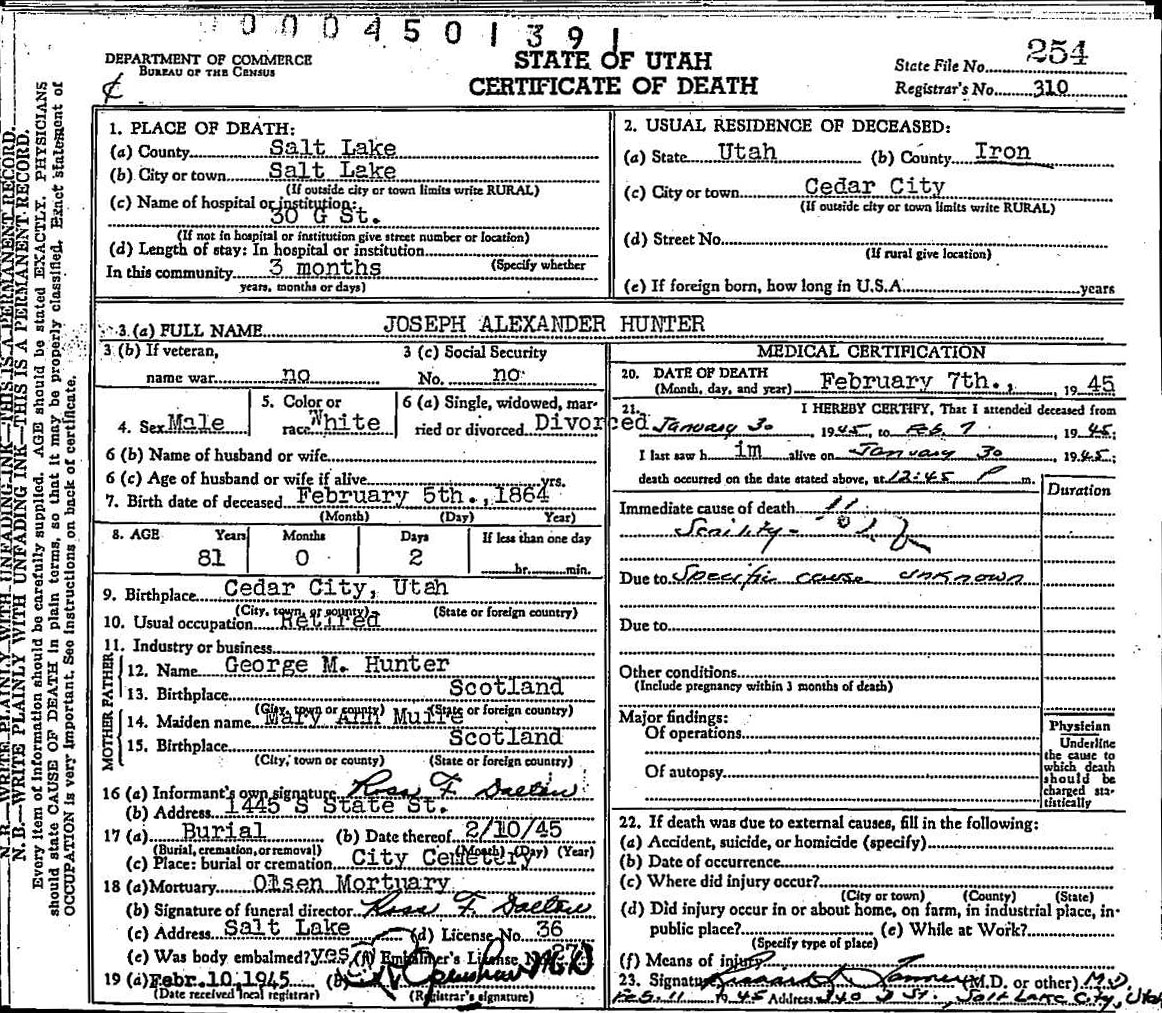 0004501391
DEPARTMENT OF COMMERCE
BUREAU OF THE CENSUS
STATE OF UTAH
CERTIFICATE OF DEATH
State File No. 254
Registrar's No. 310
N.B.—WRITE PLAINLY WITH UNFADING INK—THIS IS A PERMANENT RECORD.
N.B.—WRITE PLAINLY WITH UNFADING INK—THIS IS A PERMANENT RECORD.
Every item of information should be carefully supplied. AGE should be stated EXACTLY. PHYSICIANS
should state CAUSE OF DEATH in plain terms, so that it may be properly classified. Exact statement of
OCCUPATION is very important. See instructions on back of certificate.
1. PLACE OF DEATH:
(a) County Salt Lake
(b) City or town Salt Lake
(If outside city or town limits write RURAL)
(c) Name of hospital or institution:
30 G St.
(If not in hospital or institution give street number or location)
(d) Length of stay: In hospital or institution
(Specify whether
In this community 3 months
years, months or days)
2. USUAL RESIDENCE OF DECEASED:
(a) State Utah (b) County Iron
(c) City or town Cedar City
(If outside city or town limits write RURAL)
(d) Street No.
(If rural give location)
(e) If foreign born, how long in U.S.A. years
3 (a) FULL NAME JOSEPH ALEXANDER HUNTER
3 (b) If veteran,
name war no
3 (c) Social Security
No. no
4. Sex Male
5. Color or
race White
6 (a) Single, widowed, mar-
ried or divorced Divorced
6 (b) Name of husband or wife
6 (c) Age of husband or wife if alive yrs.
7. Birth date of deceased February 5th., 1864
(Month) (Day) Year)
8. AGE Years Months Days If less than one day
81 0 2 hr. min.
9. Birthplace Cedar City, Utah
(City, town, or county) (State or foreign country)
10. Usual occupation Retired
11. Industry or business
FATHER
12. Name George M. Hunter
13. Birthplace Scotland
(City, town or county) (State or foreign country)
MOTHER
14. Maiden name Mary Ann Muire
15. Birthplace Scotland
(City, town or county) (State or foreign country)
16 (a) Informant's own signature Ross F. Dalton
(b) Address 1445 S State St.
17 (a) Burial (b) Date thereof 2/10/45
(Burial, cremation, or removal) (Month) (Day) (Year)
(c) Place: burial or cremation City Cemetery
18 (a) Mortuary Olsen Mortuary
(b) Signature of funeral director Ross F. Dalton
(c) Address Salt Lake (d) License No. 36
(e) Was body embalmed? yes (f) Embalmer's License No.
19 (a) Febr.10,1945 (b) M.D
(Date received local registrar) (Registrar's signature)
MEDICAL CERTIFICATION
20. DATE OF DEATH
(Month, day, and year) February 7th., 1945
21. I HEREBY CERTIFY, That I attended deceased from
January 30, 1945, to Feb. 7, 1945;
I last saw him alive on January 30 1945;
death occurred on the date stated above, at 12:45 P m.
Duration
Immediate cause of death
Senility-
Due to Specific cause unknown
Due to
Other conditions
(Include pregnancy within 3 months of death)
Major findings:
Of operations
Of autopsy
Physician
Underline
the cause to
which death
should be
charged sta-
tistically
22. If death was due to external causes, fill in the following:
(a) Accident, suicide, or homicide (specify)
(b) Date of occurrence
(c) Where did injury occur?
(City or town) (County) (State)
(d) Did injury occur in or about home, on farm, in industrial place, in-
public place? (e) While at Work?
(Specify type of place)
(f) Means of injury
23. Signature (M.D. or other) M.D.
Feb. 11 1945 Address 340 St., Salt Lake City, Utah